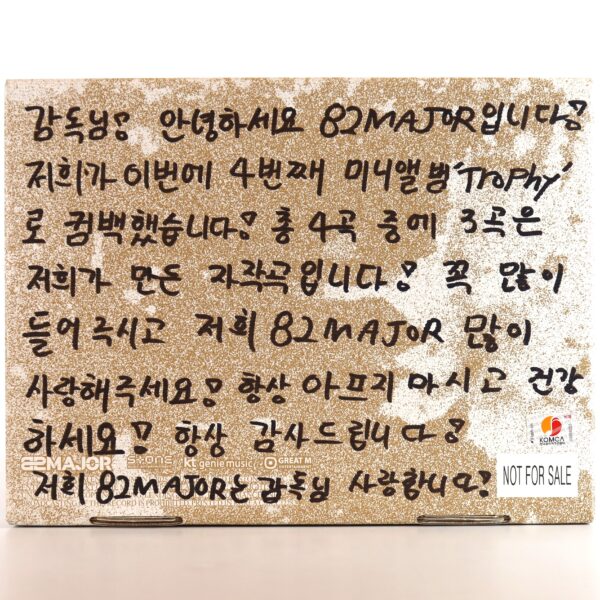 감독님! 안녕하세요 82MAJOR입니다!
저희가 이번에 4번째 미니앨범 'Trophy'
로 컴백했습니다! 총 4곡 중에 3곡은
저희가 만든 자작곡입니다! 꼭 많이
들어주시고 저희 82MAJOR 많이
사랑해주세요! 항상 아프지 마시고 건강
하세요! 항상 감사드립니다!
KOMCA
82MAJOR S:ONE kt geniemusic GREAT M
NOT FOR SALE
저희 82MAJOR는 감독님 사랑합니다!